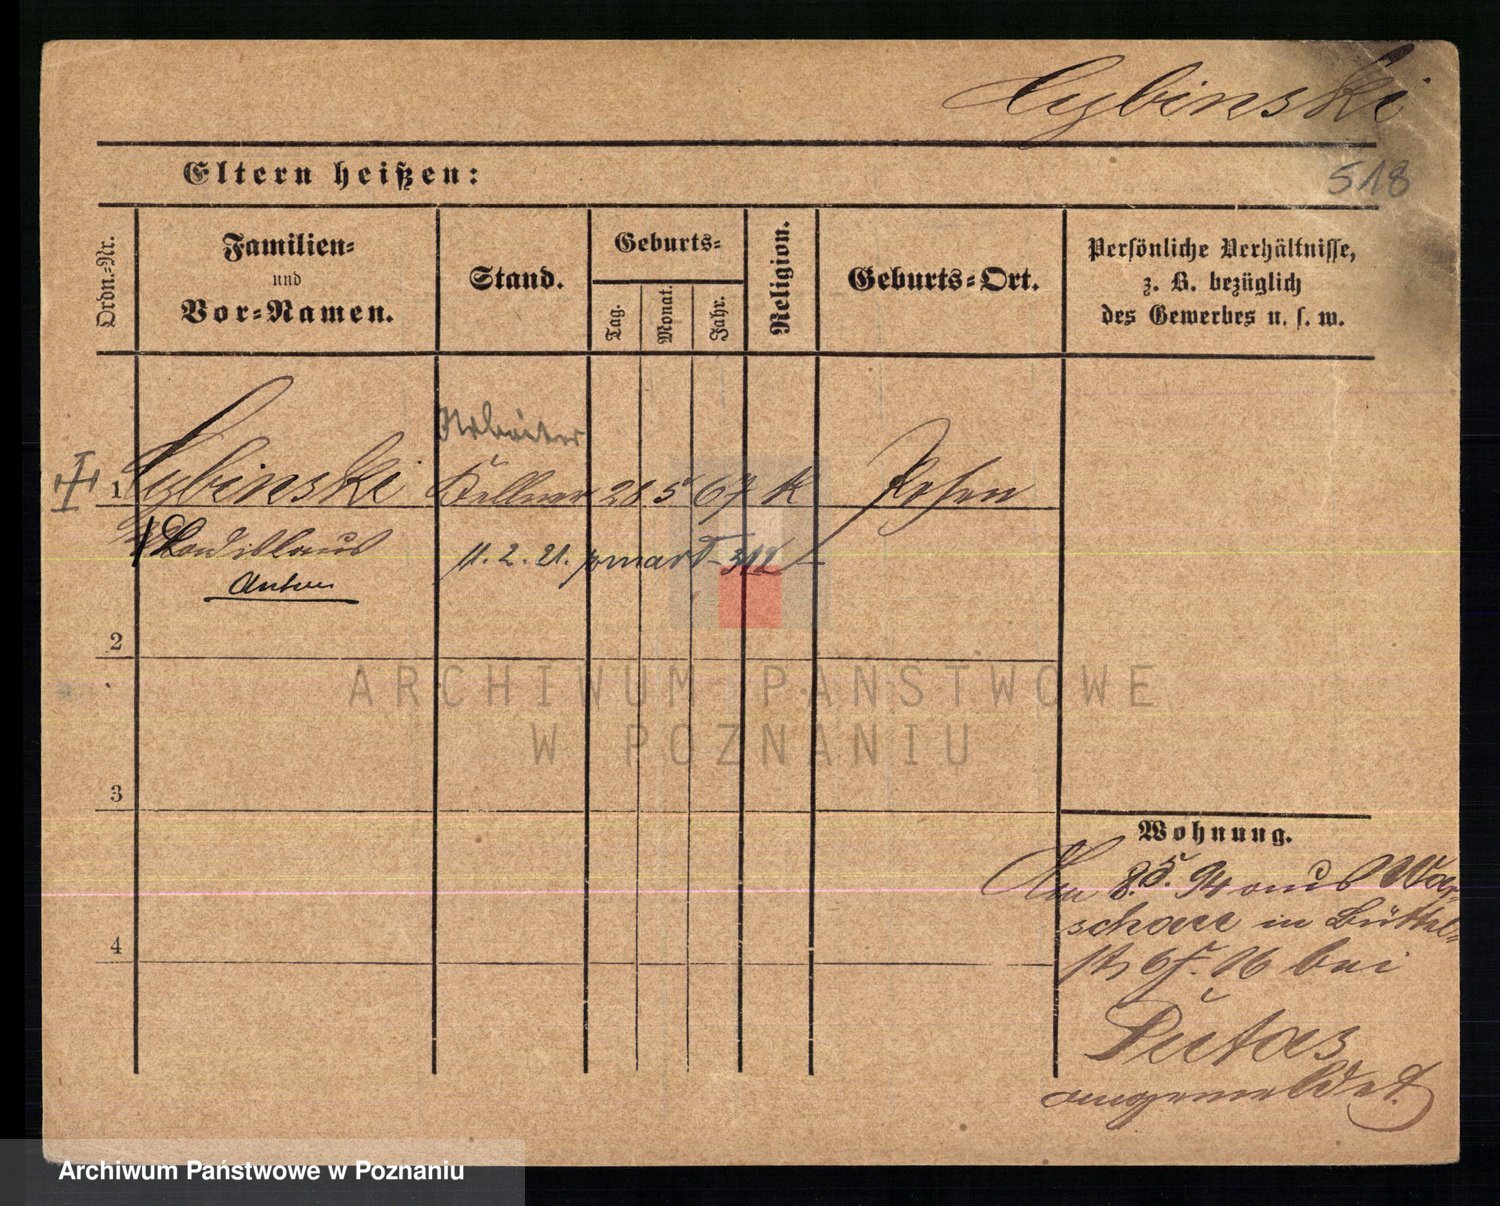 Cybinski
518
Eltern heißen:
Ordn.=Nr.
Familien=
und
Vor=Namen.
Stand.
Geburts=
Tag.
Monat.
Jahr.
Religion.
Geburts=Ort.
Persönliche Verhältnisse,
z. B. bezüglich
des Gewerbes u. s. w.
Arbeiter
1 Cybinski Kellner 28 5 67 K Posen
Wladislaus 11. 2. 21.
Anton
2
ARCHIWUM PAŃSTWOWE
W POZNANIU
3
Wohnung.
8.5. 94 aus War-
schau in Büttel-
bei
angemeldet.
4
Archiwum Państwowe w Poznaniu